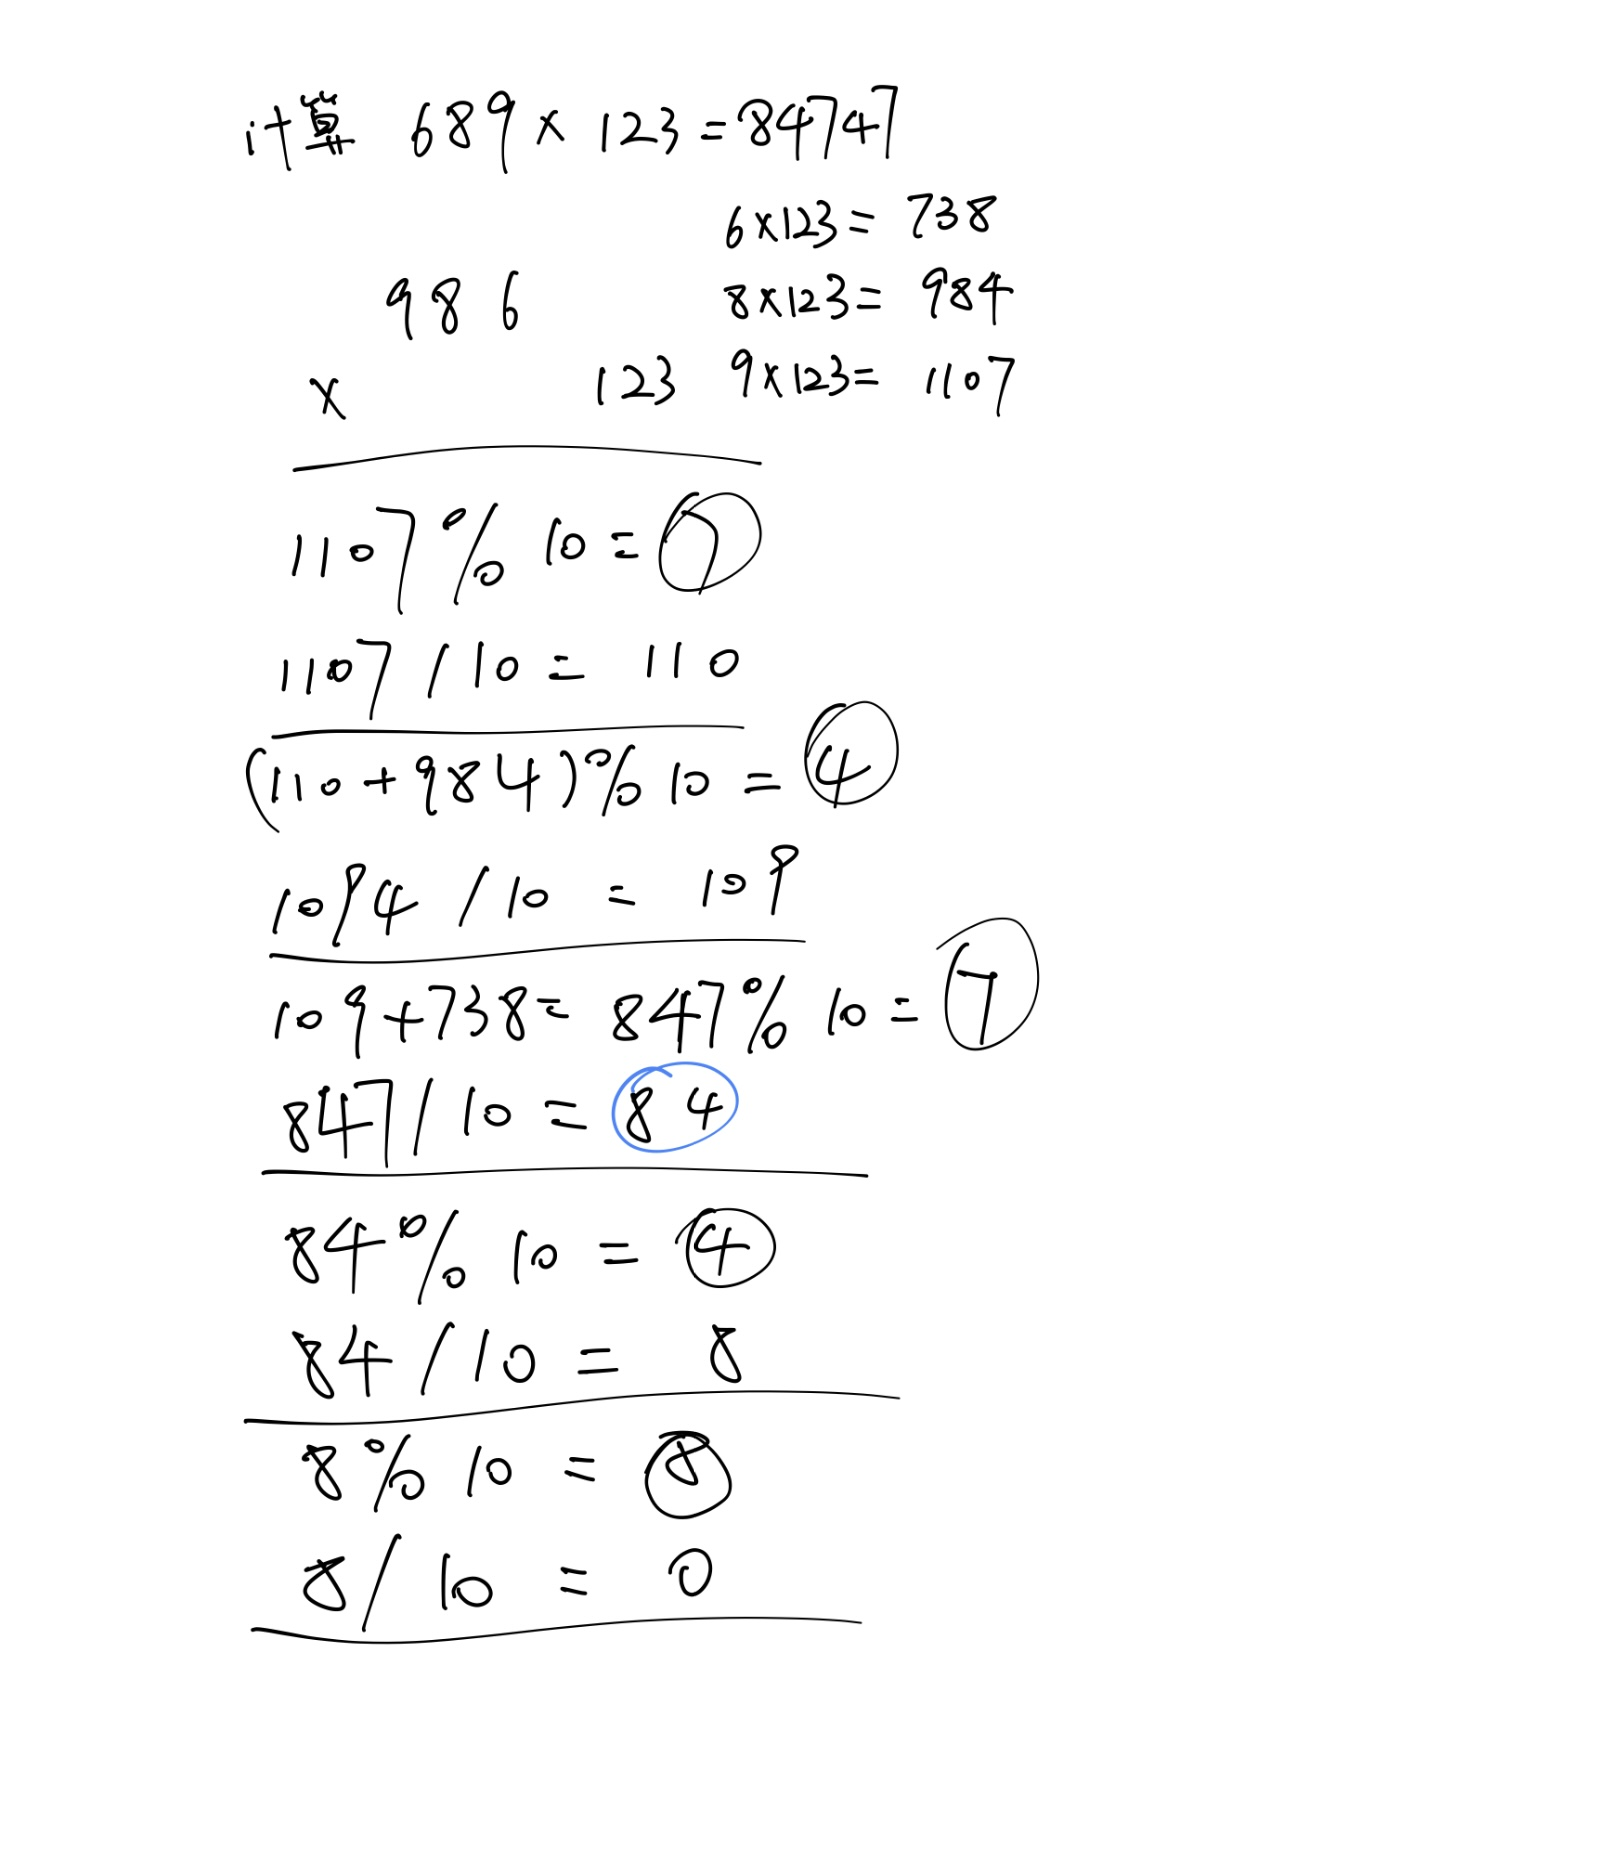 计算 689 × 123 = 84747
6×123= 738
986 8×123= 984
× 123 9×123= 1107
1107 % 10 = 7
1107 / 10 = 110
(110 + 984) % 10 = 4
1094 / 10 = 109
109+738= 847 % 10 = 7
847 / 10 = 84
84 % 10 = 4
84 / 10 = 8
8 % 10 = 8
8 / 10 = 0